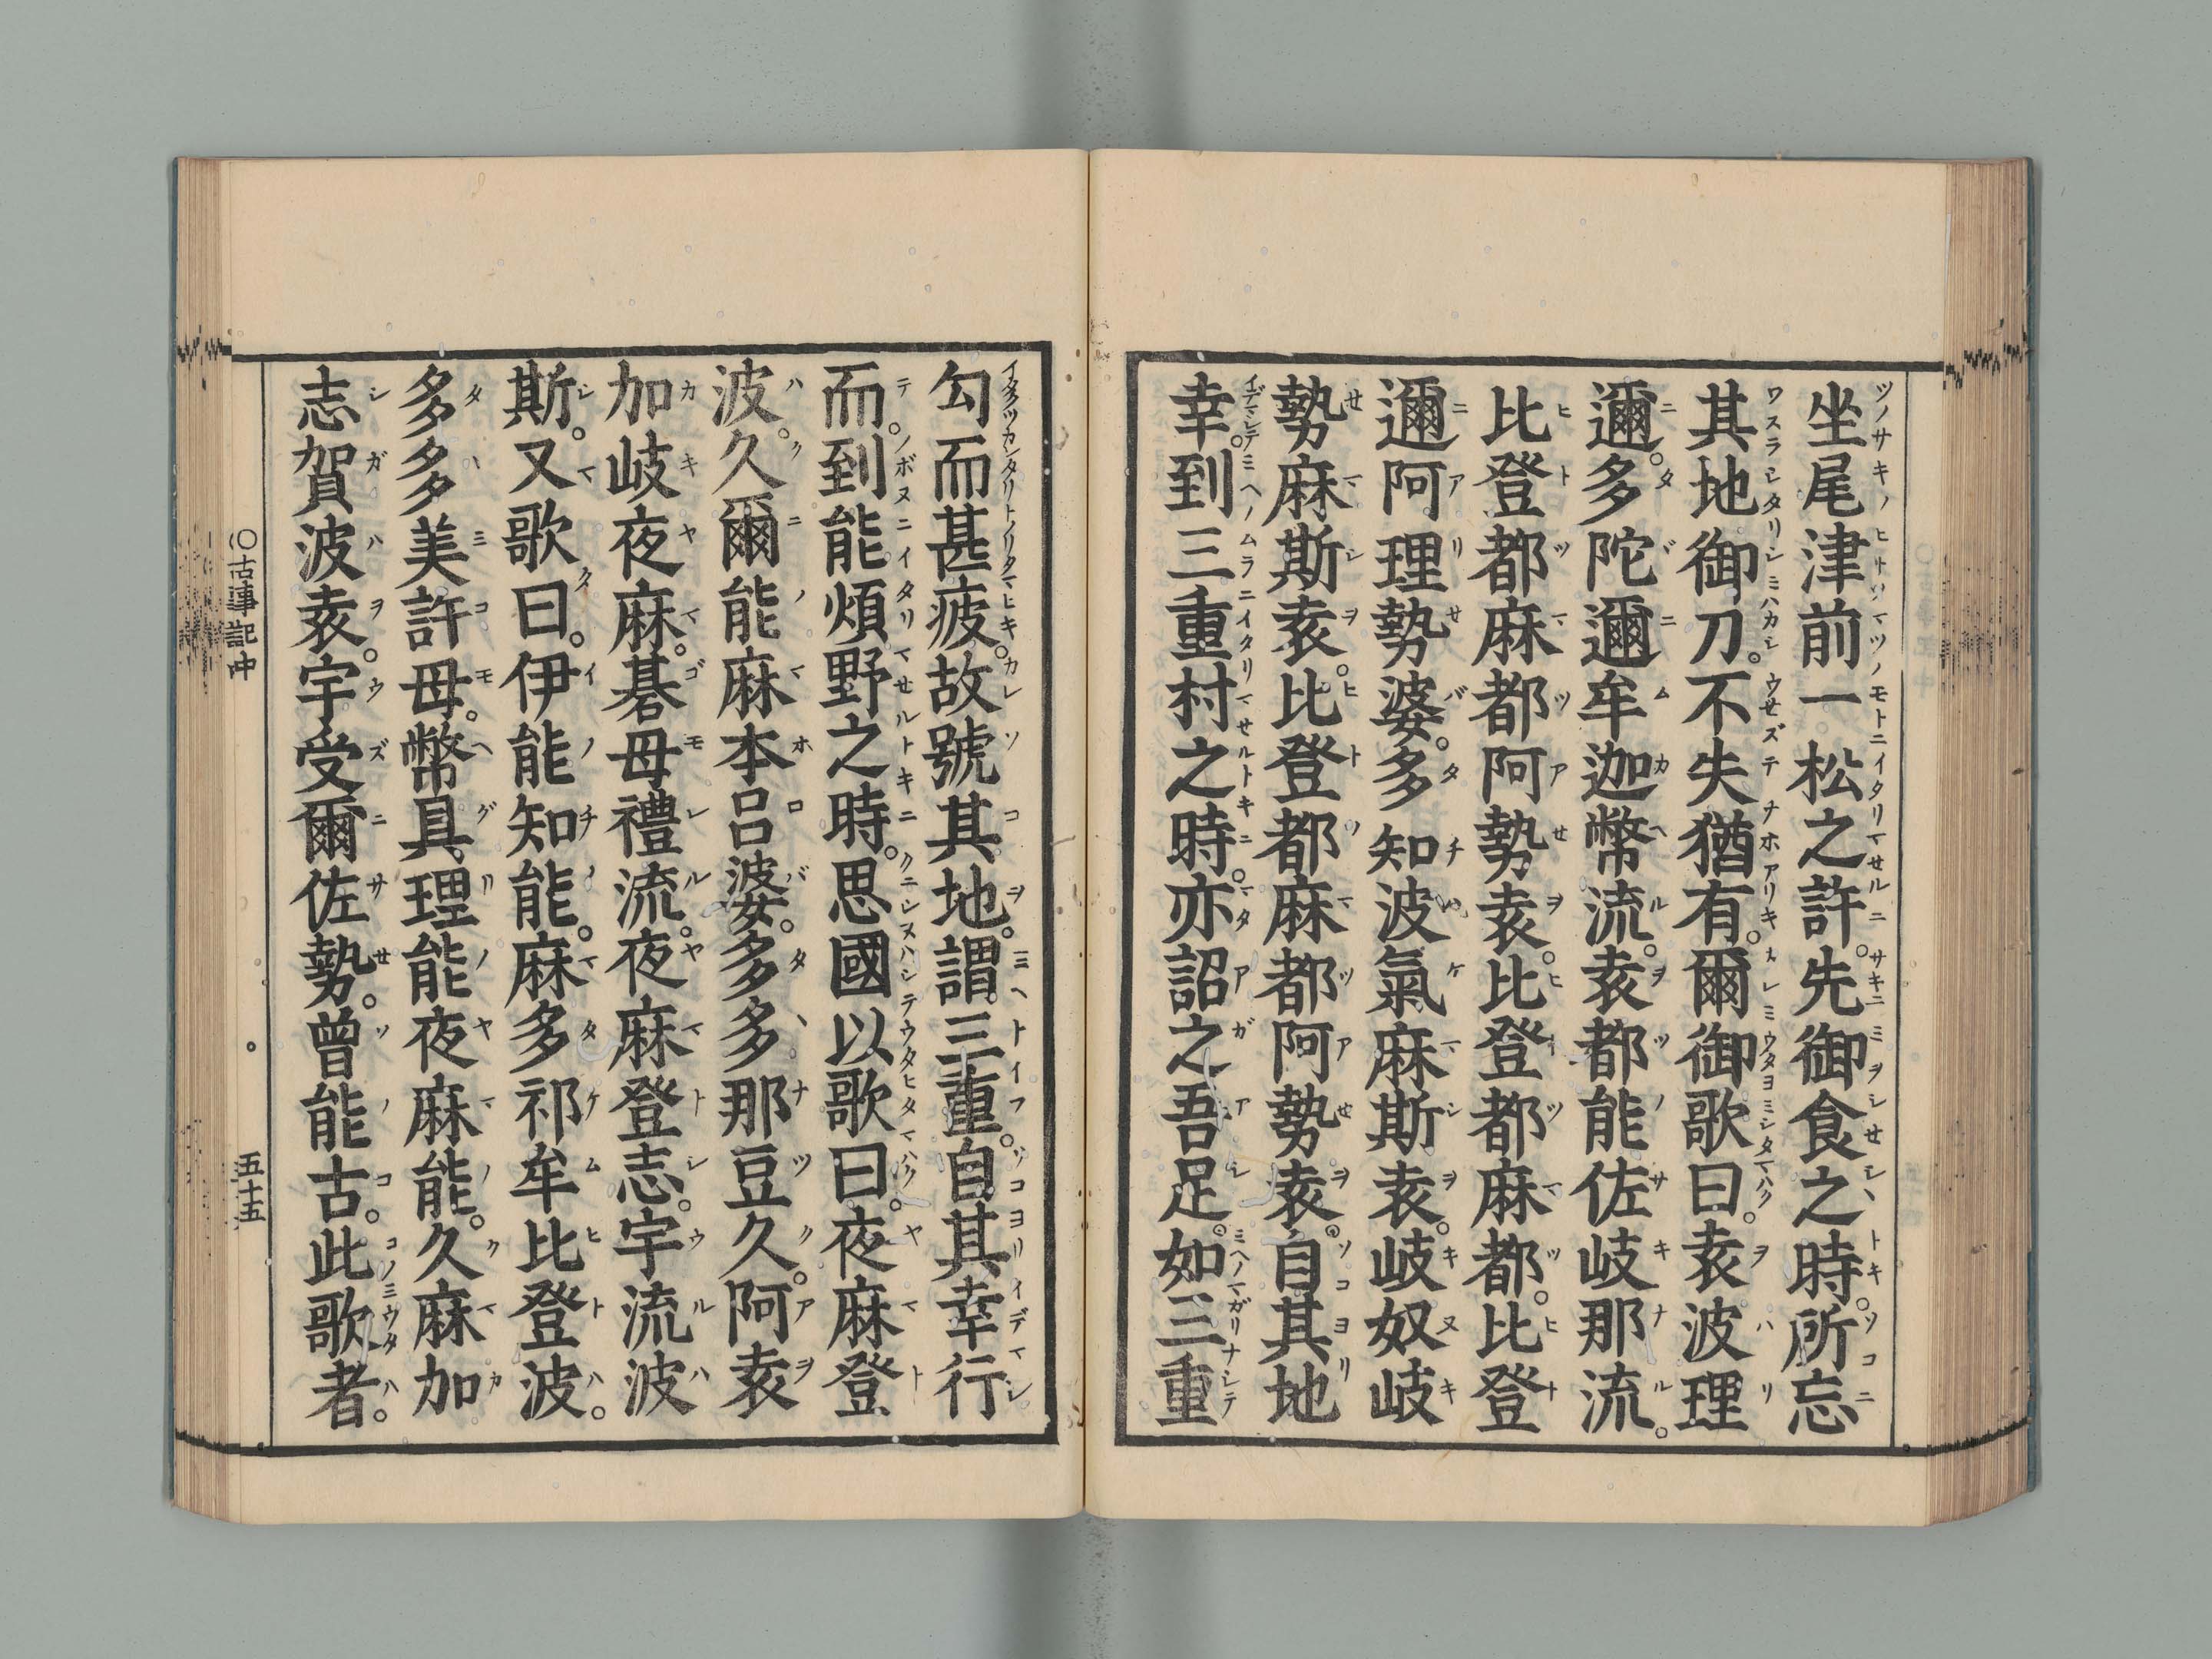 坐尾津前一松之許。先御食之時。所忘
其地御刀。不失猶有。爾御歌曰。袁波理
邇。多陀邇牟迦幣流。袁都能佐岐那流。
比登都麻都阿勢袁。比登都麻都。比登
邇阿理勢婆。多知波氣麻斯袁。岐奴岐
勢麻斯袁。比登都麻都阿勢袁。自其地
幸。到三重村之時。亦詔之吾足。如三重
勾而甚疲。故號其地。謂三重。自其幸行
而。到能煩野之時。思國以歌曰。夜麻登
波。久爾能麻本呂婆。多多那豆久。阿袁
加岐夜麻。碁母禮流。夜麻登志。宇流波
斯。又歌曰。伊能知能。麻多祁牟比登波。
多多美許母。幣具理能夜麻能。久麻加
志賀波袁。宇受爾佐勢。曾能古。此歌者。
〇古事記中
五十五